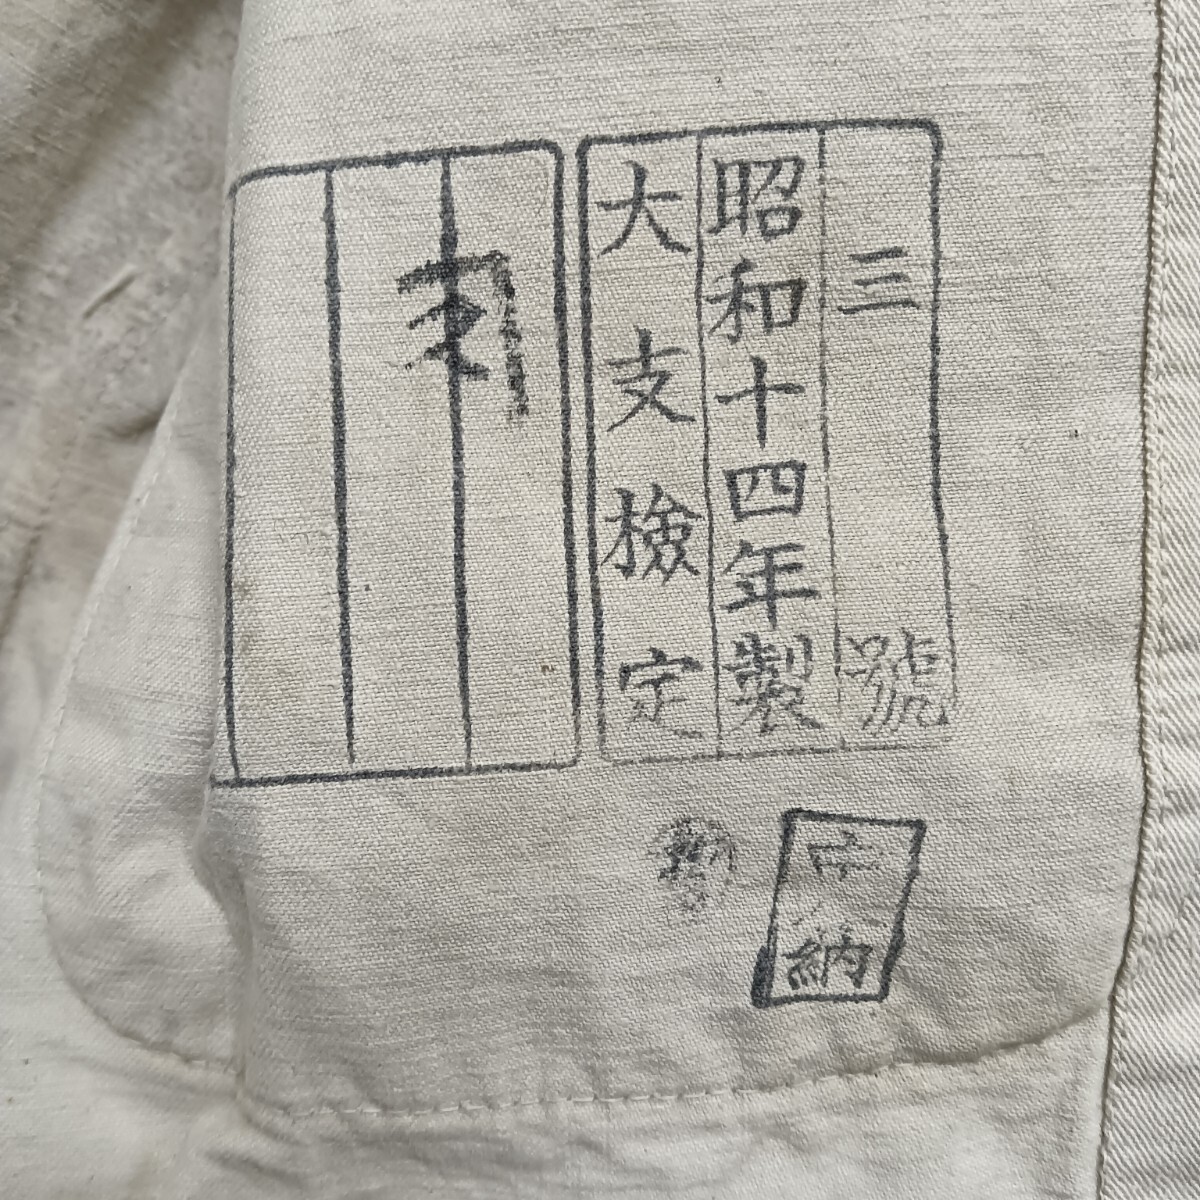 三號
昭和十四年製
大支檢定
納